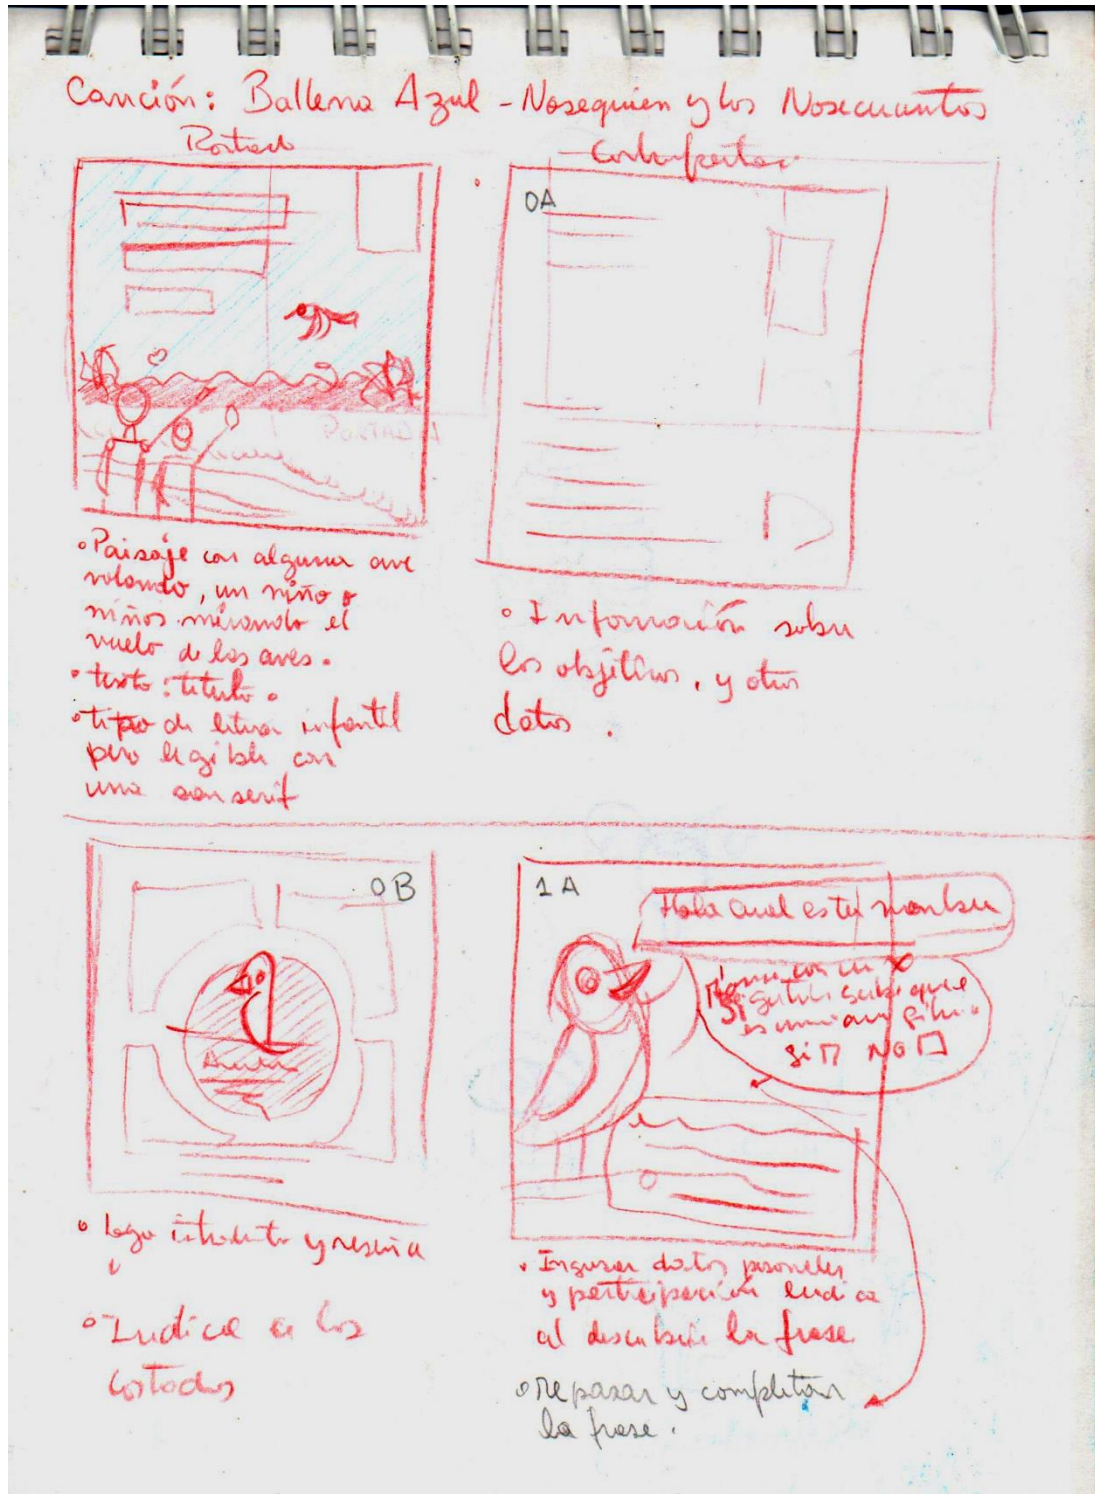 Canción: Ballena Azul - Nosequien y los Nosecuantos
Portada
Contraportada
0A
PORTADA
• Paisaje con alguna ave
volando, un niño o
niños mirando el
vuelo de las aves.
• texto: titulo.
• tipo de letra infantil
pero legible con
una san serif
• Información sobre
los objetivos, y otros
datos.
0B
• Logo y reseña
• Ludica a los
costados
1A
Hola cual es tu nombre
Marca con un X
si
es un ave
Si NO
• Ingresar datos personales
y participación ludica
al descubrir la frase
• repasar y completar
la frase.